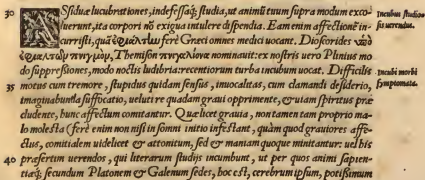 30 ASsiduæ lucubrationes, indefessaq́; studia, ut animũ tuum supra modum exco-
luerunt, ita corpori nõ exigua intulere dispendia. Eam enim affectionẽ in-
curristi, quã ἐφιάλτω ferè Græci omnes medici uocant. Dioscorides ὑπὸ
ἐφιαλτῶν πνιγμόν, Themison πνιγαλίονα nominauit: ex nostris uero Plinius mo
do suppressiones, modo noctis ludibria: recentiorum turba incubum uocat. Difficilis
35 motus cum tremore, stupidus quidam sensus, inuocalitas, cum clamandi desiderio,
imaginabunda suffocatio, ueluti re quadam graui opprimente, & uiam spiritus præ
cludente, hunc affectum comitantur. Quæ licet grauia, non tamen tam proprio ma-
lo molesta (ferè enim non nisi in somni initio infestant, quàm quod grauiores affe-
ctus, comitialem uidelicet & attonitum, sed & maniam quoque minitantur: uel his
40 præsertim uerendos, qui literarum studijs incumbunt, ut per quos animi sapien-
tiaq́; secundum Platonem & Galenum sedes, hoc est, cerebrum ipsum, potissimum
Incubus studio-
sis uerendus.
Incubi morbi
symptomata.